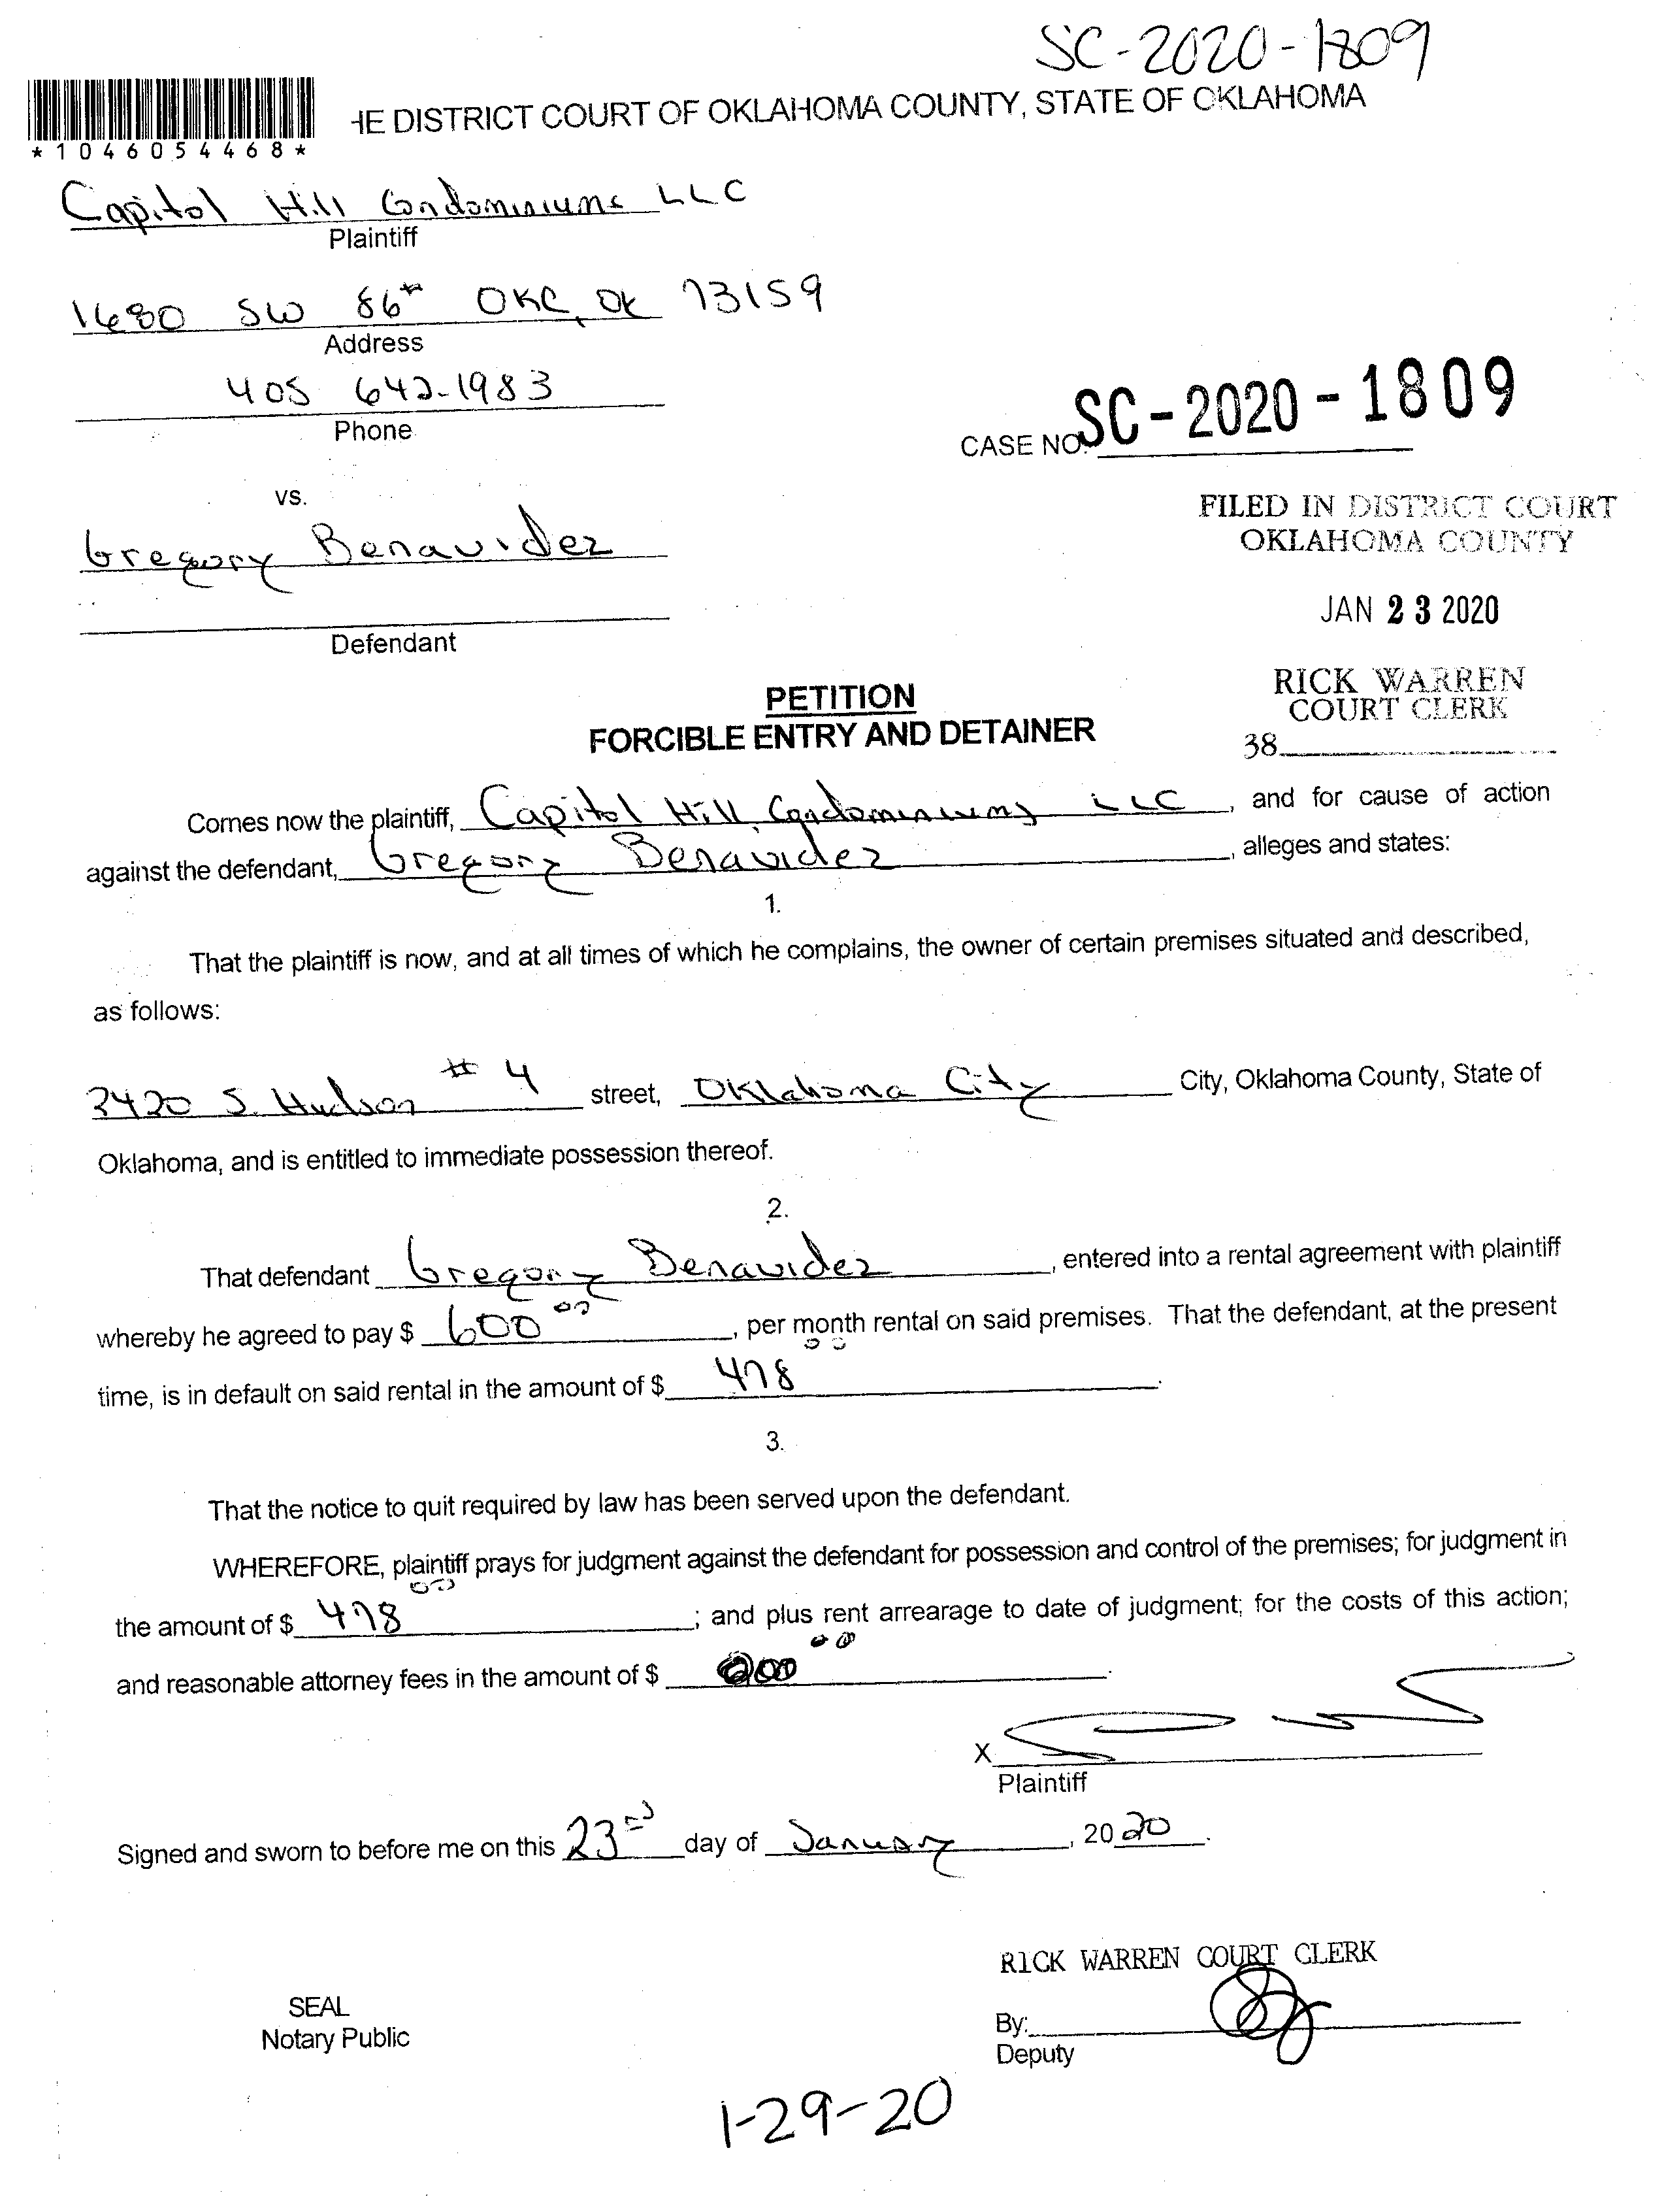 SC-2020-1809
HE DISTRICT COURT OF OKLAHOMA COUNTY, STATE OF OKLAHOMA
*1046054468*
Capitol Hill Condominiums LLC
Plaintiff
1680 SW 86th OKC, OK 73159
Address
405 642-1983
Phone
CASE NO. SC-2020-1809
vs.
FILED IN DISTRICT COURT
OKLAHOMA COUNTY
Gregory Benavidez
JAN 23 2020
Defendant
RICK WARREN
COURT CLERK
38
PETITION
FORCIBLE ENTRY AND DETAINER
Comes now the plaintiff, Capitol Hill Condominiums LLC, and for cause of action
against the defendant, Gregory Benavidez, alleges and states:
1.
That the plaintiff is now, and at all times of which he complains, the owner of certain premises situated and described,
as follows:
3420 S. Hudson #4 street, Oklahoma City City, Oklahoma County, State of
Oklahoma, and is entitled to immediate possession thereof.
2.
That defendant Gregory Benavidez, entered into a rental agreement with plaintiff
whereby he agreed to pay $ 600 00, per month rental on said premises. That the defendant, at the present
time, is in default on said rental in the amount of $ 478 00.
3.
That the notice to quit required by law has been served upon the defendant.
WHEREFORE, plaintiff prays for judgment against the defendant for possession and control of the premises; for judgment in
the amount of $ 478 00; and plus rent arrearage to date of judgment; for the costs of this action;
and reasonable attorney fees in the amount of $ 200 00.
X
Plaintiff
Signed and sworn to before me on this 23rd day of January, 2020.
RICK WARREN COURT CLERK
SEAL
Notary Public
By:
Deputy
1-29-20